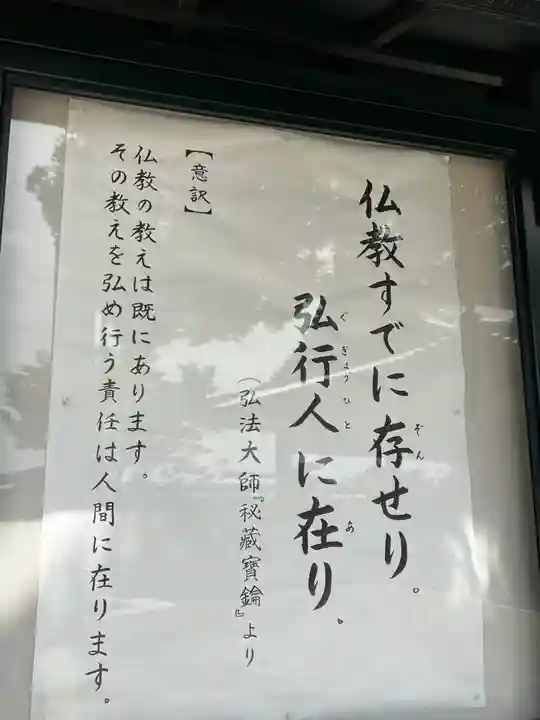 仏教すでに存せり。
弘行人に在り。
(弘法大師『秘蔵寶鑰』より
【意訳】
仏教の教えは既にあります。
その教えを弘め行う責任は人間に在ります。
ぞん
ぐぎょうひと
あ